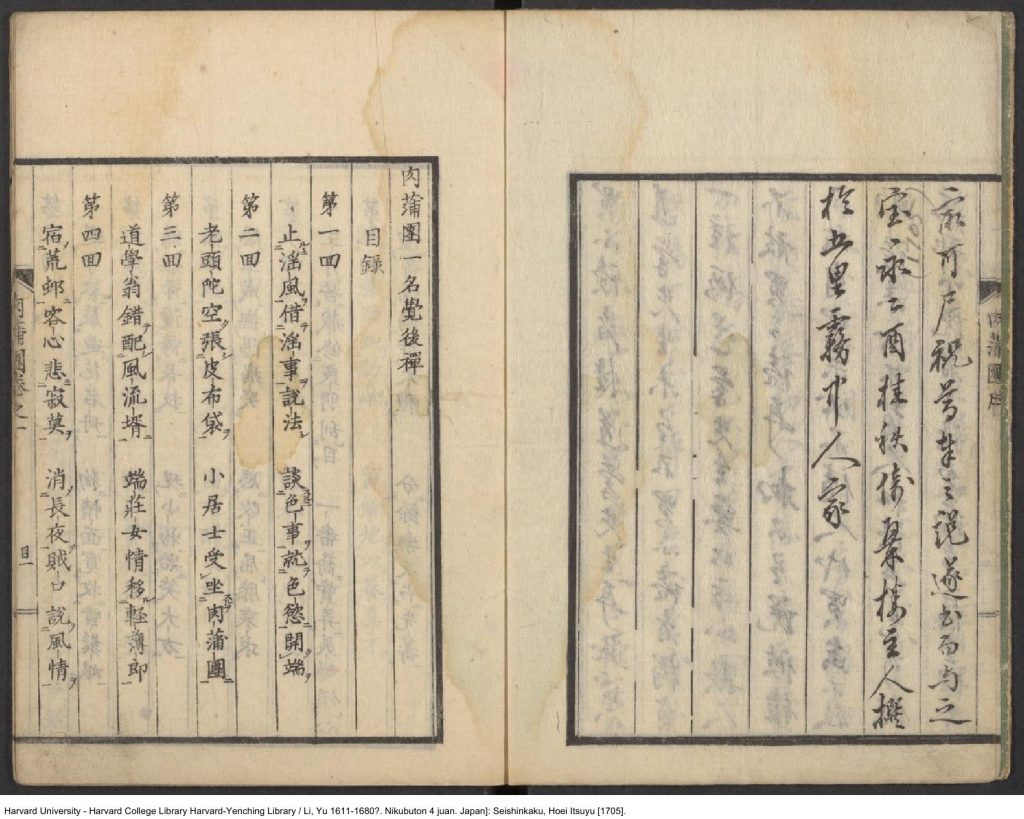 可尸祝 之説遂書而与之
宝永乙酉桂秋倚翠楼主人撰
於五里霧中人家
肉蒲團序
肉蒲團一名覺後禪
目錄
第一回
止淫風借淫事説法 談色事就色慾開端
第二回
老頭陀空張皮布袋 小居士受坐肉蒲團
第三回
道學翁錯配風流壻 端莊女情移輕薄郎
第四回
宿荒邨客心悲寂寞 消長夜賊口説風情
肉蒲團卷之一 目一
Harvard University - Harvard College Library Harvard-Yenching Library / Li, Yu 1611-1680?. Nikubuton 4 juan. Japan]: Seishinkaku, Hoei Itsuyu [1705].